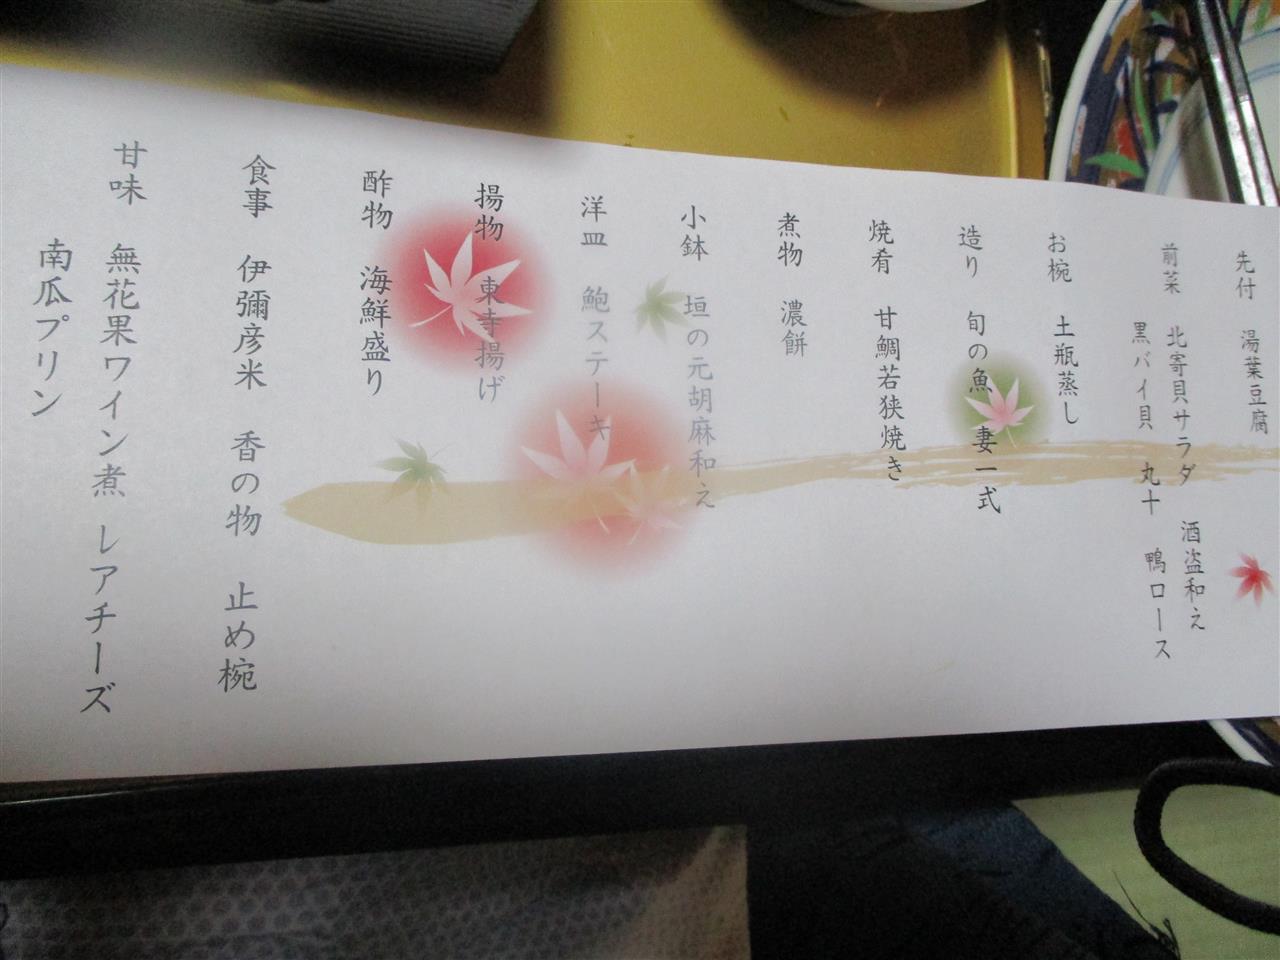 先付 湯葉豆腐
前菜 北寄貝サラダ 酒盗和え
黒バイ貝 丸十 鴨ロース
お椀 土瓶蒸し
造り 旬の魚 妻一式
焼肴 甘鯛若狭焼き
煮物 濃餅
小鉢 垣の元胡麻和え
洋皿 鮑ステーキ
揚物 東寺揚げ
酢物 海鮮盛り
食事 伊彌彦米 香の物 止め椀
甘味 無花果ワイン煮 レアチーズ
南瓜プリン